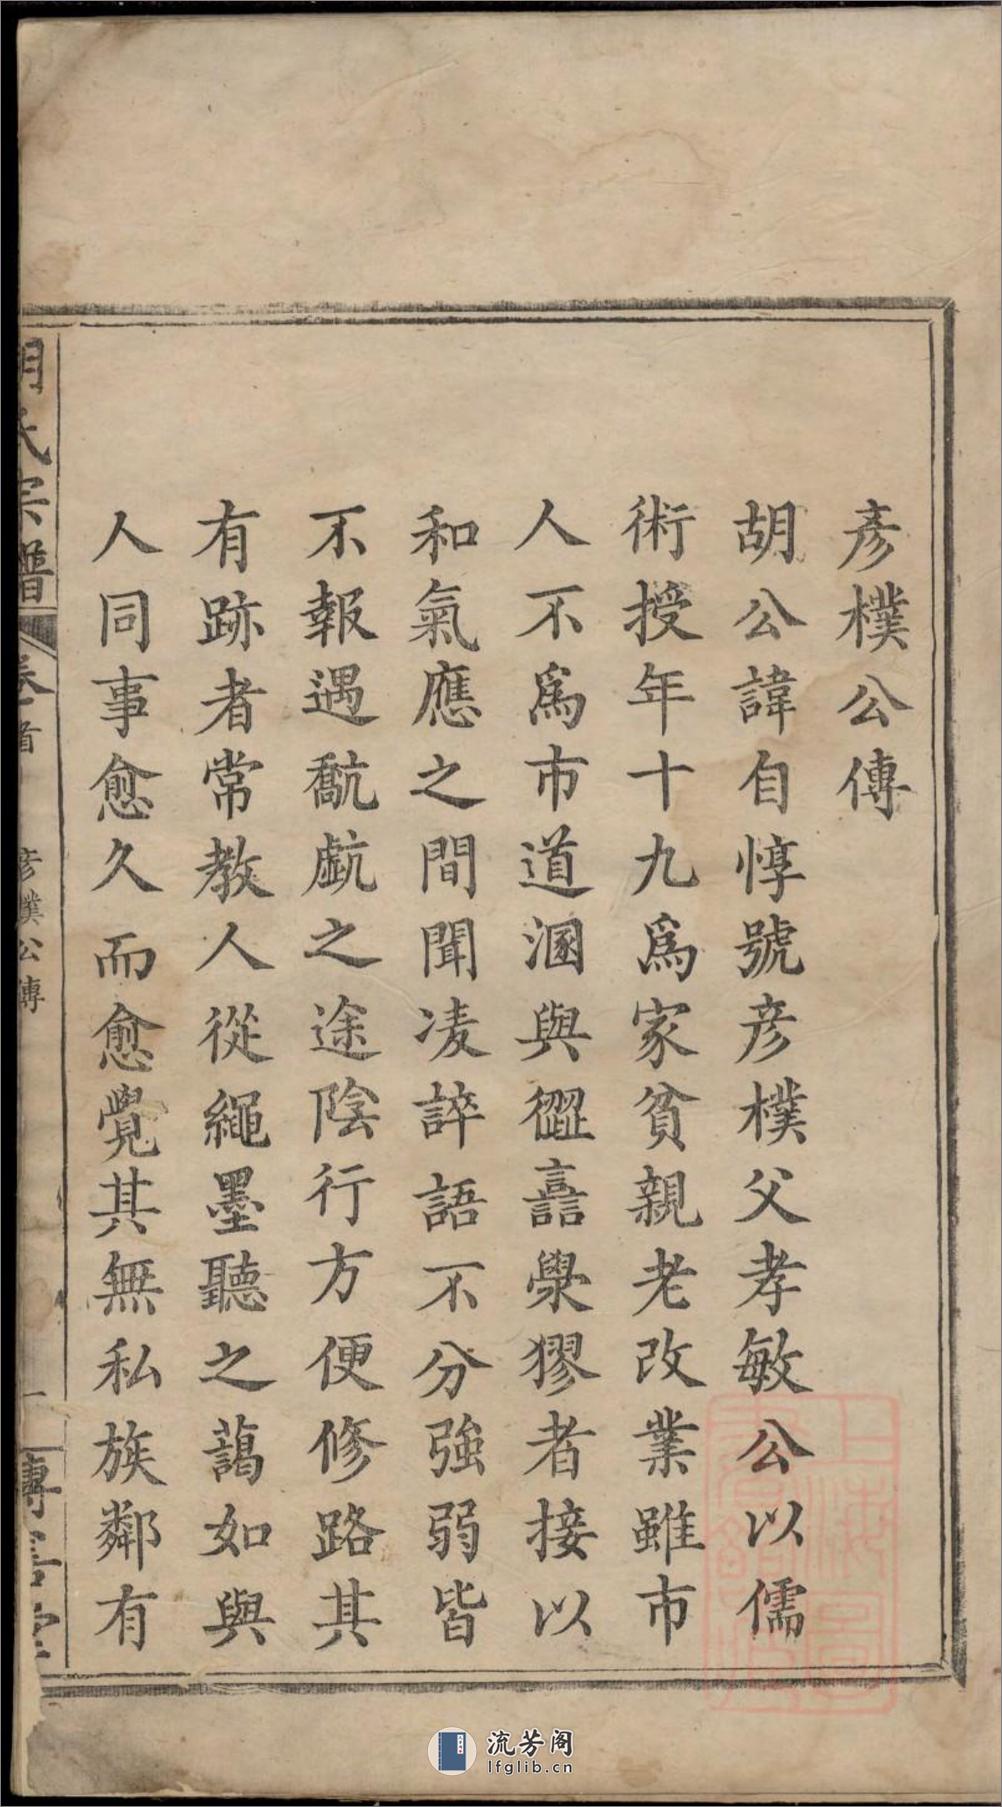 彥樸公傳
胡公諱自惇號彥樸父孝敏公以儒
術授年十九爲家貧親老改業雖市
人不爲市道溷與譅譶㒑獿者接以
和氣應之間聞凌誶語不分強弱皆
不報遇虧之途陰行方便修路其
有跡者常教人從繩墨聽之藹如與
人同事愈久而愈覺其無私族鄰有
胡氏宗譜
卷首
彥樸公傳
一
傳善堂
上海圖書館藏
流芳阁
lfglib.cn